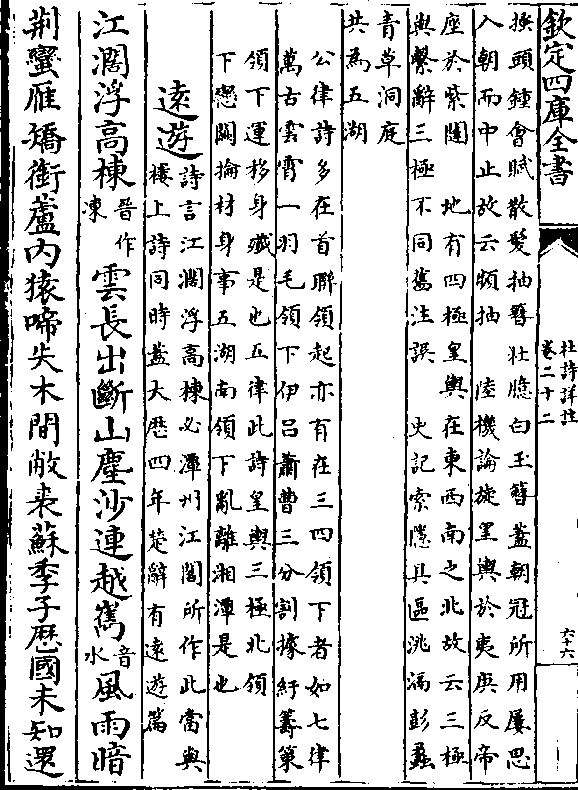 欽定四庫全書
杜詩詳註
卷二十二
六六
換頭鍾會賦散髮抽簪壯牕白玉簪蓋朝冠所用屢思
入朝而中止故云頻抽　陸機論旋皇輿於夷庚反帝
座於紫闥　地有四極皇輿在東西南之北故云三極
與繫辭三極不同舊注誤　史記索隱具區洮滆彭蠡
青草洞庭
共為五湖
公律詩多在首聯領起亦有在三四領下者如七律
萬古雲霄一羽毛領下伊呂蕭曹三分割據紆籌策
領下運移身殲是也五律此詩皇輿三極北領
下戀闕掄材身事五湖南領下亂離湘潭是也
遠遊
詩言江濶浮高棟必潭州江閣所作此當與
樓上詩同時蓋大歴四年楚辭有遠遊篇
江濶浮高棟
晉作
凍
雲長出斷山塵沙連越嶲
音
水
風雨暗
荆蠻雁矯銜蘆内猿啼失木間敝裘蘇季子歴國未知還